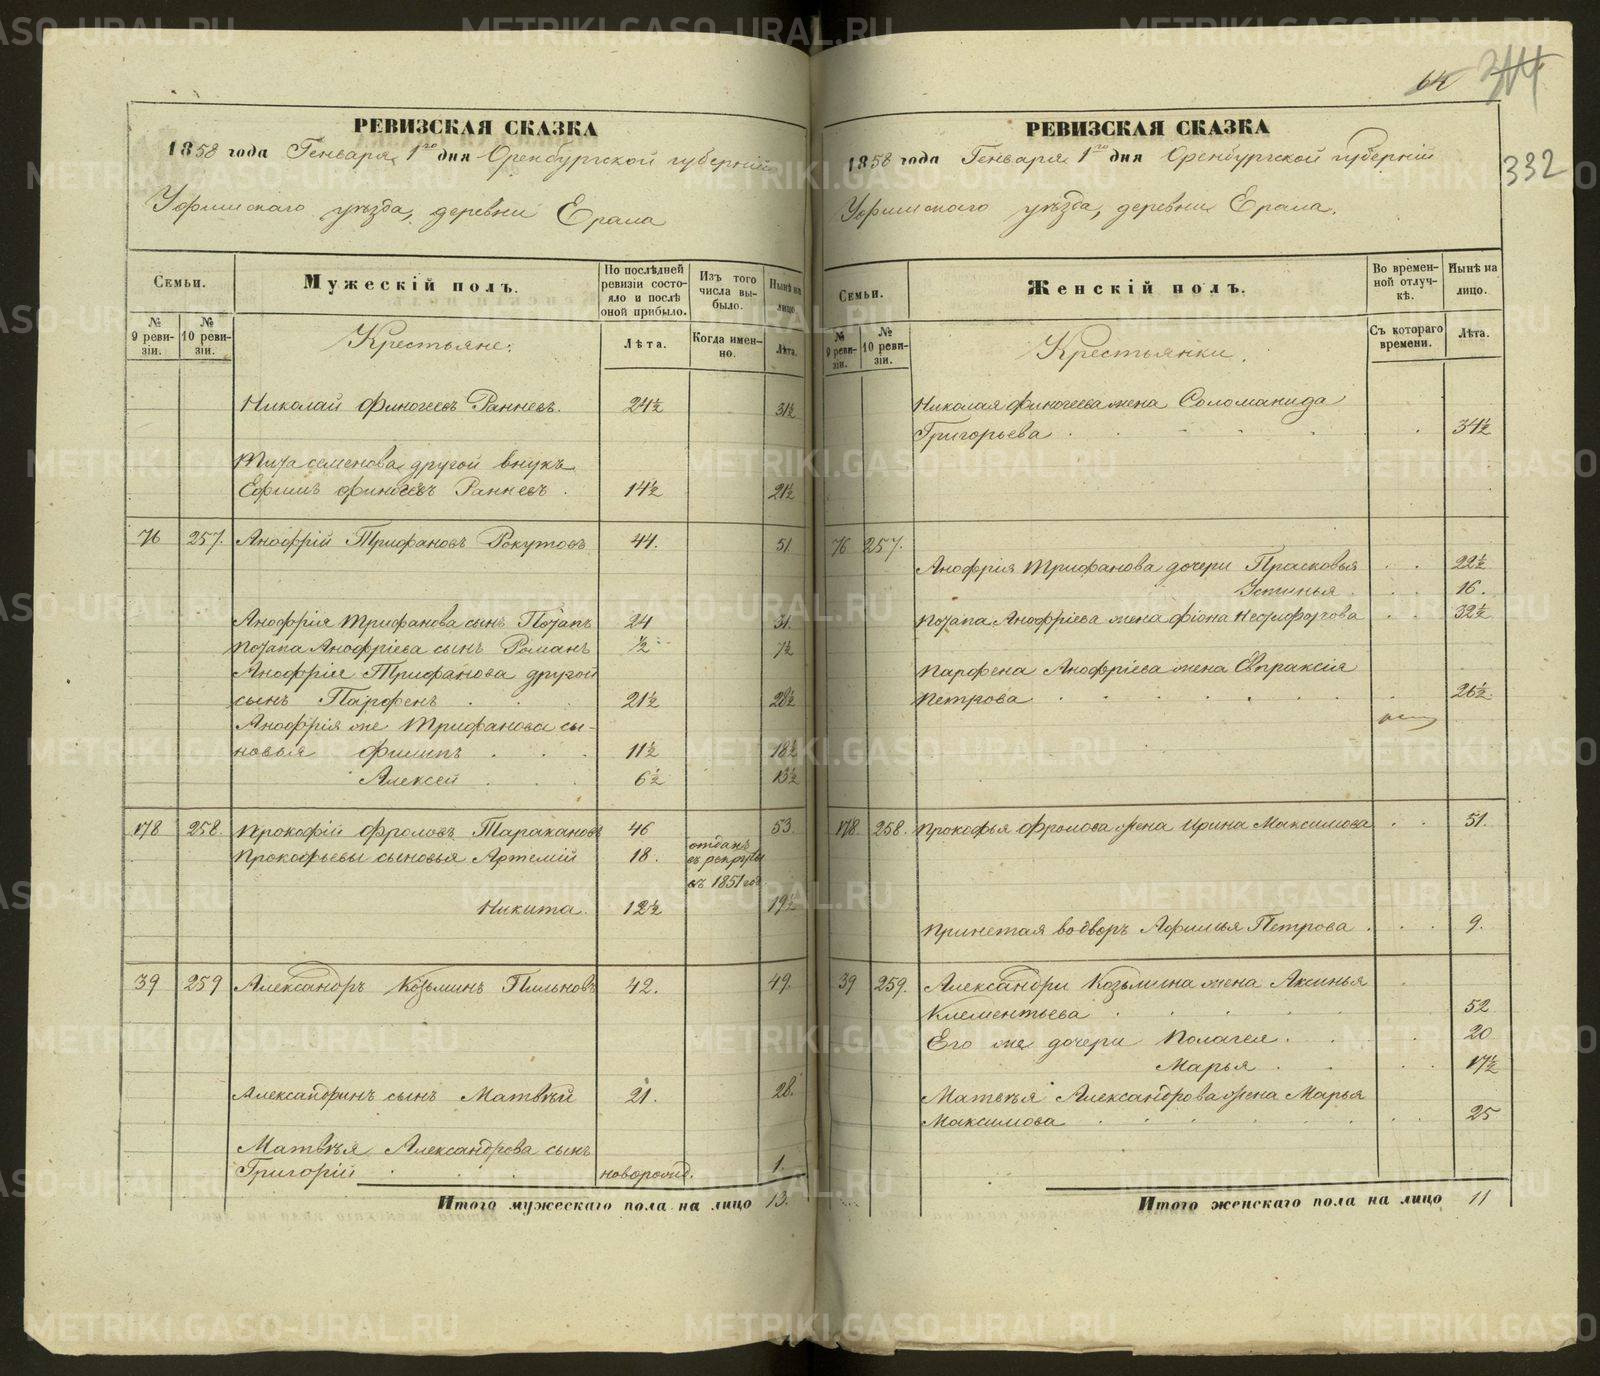 64 314
332
РЕВИЗСКАЯ СКАЗКА
1858 года Генваря 1го дня Оренбургской губерніи
Уфимскаго уѣзда, деревни Ерала
Семьи.
Мужескій полъ.
По послѣдней ревизіи состояло и послѣ оной прибыло.
Изъ того числа выбыло.
Нынѣ на лицо.
№ 9 ревизіи.
№ 10 ревизіи.
Крестьяне:
Лѣта.
Когда именно.
Лѣта.
Николай Финогеевъ Ранневъ. 24½ 31½
Тита Семенова другой внукъ
Ефимъ Финогеевъ Ранневъ. 14½ 21½
76 257. Анофрій Трифановъ Рокутовъ 44. 51
Анофрія Трифанова сынъ Потапъ 24 31
Потапа Анофріева сынъ Романъ ½ 7½
Анофрія Трифанова другой
сынъ Парфенъ 21½ 28½
Анофрія же Трифанова сы-
новья Филипъ 11½ 18½
Алексей 6½ 13½
178 258. Прокофій Фроловъ Таракановъ 46 53
Прокофьевы сыновья Артемій 18. отданъ въ рекруты въ 1851 год
Никита. 12½ 19½
39 259 Александръ Козьминъ Пильновъ 42. 49.
Александринъ сынъ Матвѣй 21. 28.
Матвѣя Александрова сынъ
Григорій новорожд. 1.
Итого мужескаго пола на лицо 13.
РЕВИЗСКАЯ СКАЗКА
1858 года Генваря 1го дня Оренбургской губерніи
Уфимскаго уѣзда, деревни Ерала.
Семьи.
Женскій полъ.
Во временной отлучкѣ.
Нынѣ на лицо.
№ 9 ревизіи.
№ 10 ревизіи.
Крестьянки.
Съ котораго времени.
Лѣта.
Николая Финогеева жена Соломанида
Григорьева 34½
76 257.
Анофрія Трифанова дочери Прасковья 22½
Устинья 16.
Потапа Анофріева жена Фіона Несифорова 32½
Парфена Анофріева жена Евпраксія
Петрова 26½
178 258. Прокофья Фролова жена Ирина Максимова 51.
Принетая во дворъ Афимья Петрова 9.
39 259. Александра Козьмина жена Аксинья
Клементьева 52
Его же дочери Полагея. 20
Марья 17½
Матвѣя Александрова жена Марья
Максимова 25
Итого женскаго пола на лицо 11
METRIKI.GASO-URAL.RU